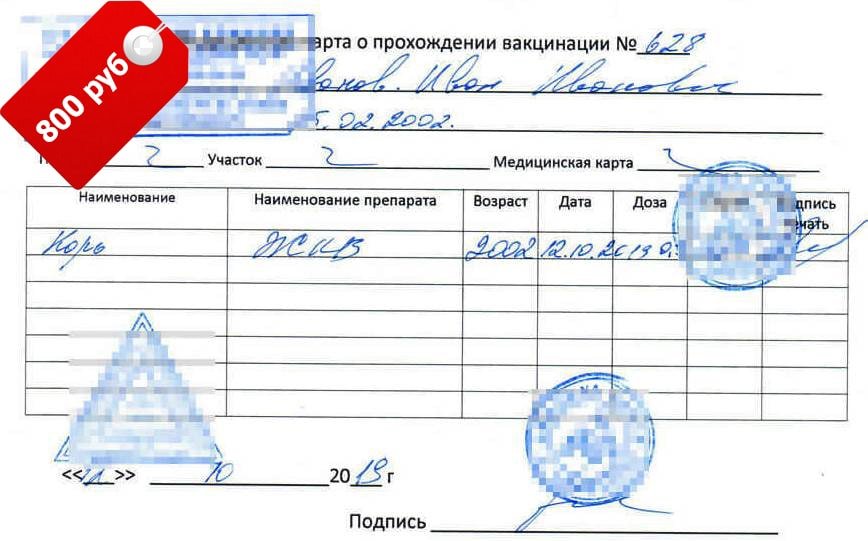 800 руб
арта о прохождении вакцинации № 628
ванов. Иван Иванович
5.02.2002.
2 Участок 2 Медицинская карта
Наименование Наименование препарата Возраст Дата Доза дпись
ечать
Корь ЖКВ 2002 12.10.2019 0,
<< >> 10 2019 г
Подпись